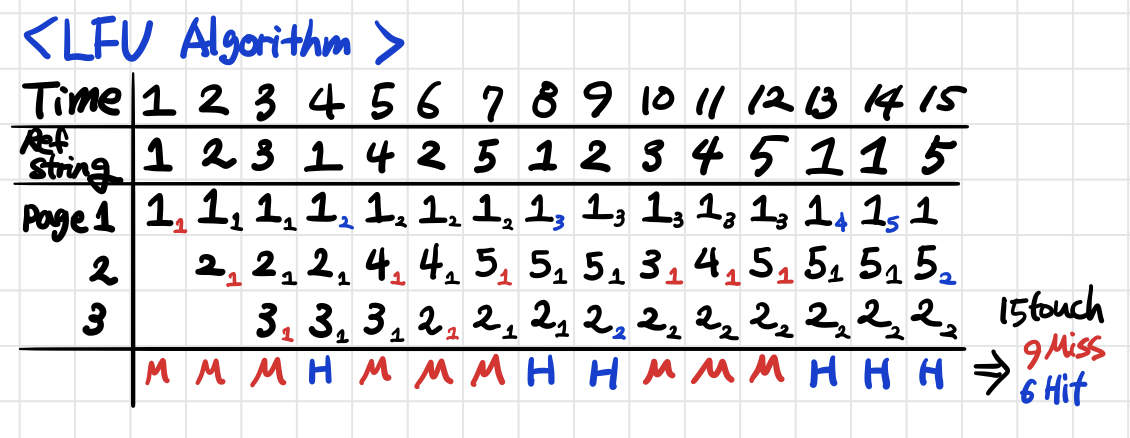 <LFU Algorithm>
Time 1 2 3 4 5 6 7 8 9 10 11 12 13 14 15
Ref string 1 2 3 1 4 2 5 1 2 3 4 5 1 1 5
Page 1 1₁ 1₁ 1₁ 1₂ 1₂ 1₂ 1₂ 1₃ 1₃ 1₃ 1₃ 1₃ 1₄ 1₅ 1
2 2₁ 2₁ 2₁ 4₁ 4₁ 5₁ 5₁ 5₁ 3₁ 4₁ 5₁ 5₁ 5₁ 5₂
3 3₁ 3₁ 3₁ 2₁ 2₁ 2₁ 2₂ 2₂ 2₂ 2₂ 2₂ 2₂ 2₂
M M M H M M M H H M M M H H H
⇒ 15 touch
9 Miss
6 Hit